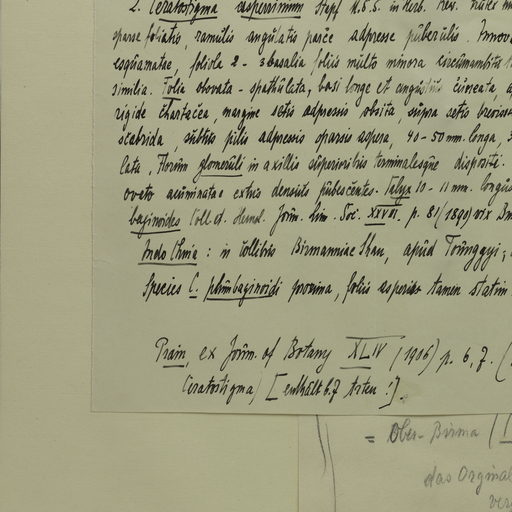 2. Ceratostigma asperrimum Stapf N.S.S. in Herb. Kew.
sparse foliatis, ramulis angulatis parce adpresse puberulis. Innova
esquamatae, foliola 2-3 basalia foliis multo minora circumambitu
similia. Folia obovata-spathulata, basi longe et angustius cuneata,
rigide chartacea, margine setis adpressis obsita, supra setis brevissi
scabrida, subtus pilis adpressis sparsis aspera, 40-50 mm. longa,
lata, Florum glomeruli in axillis superioribus terminalesque dispositi.
ovato acuminatae extus densius pubescentes. Calyx 10-11 mm. longus
baginoides Coll et Hemsl. Journ. Linn. Soc. XXVIII. p. 81 (1890) vix Bu
Indo China: in collibus Birmanniae Shan, apud Toünggyi;
Species C. plumbaginoidi proxima, foliis asperis tamen statim
Prain, ex Journ. of Botany XLIV (1906) p. 6, 7. (
Ceratostigma) [enthält 6.7 Arten!].
= Ober-Birma (
das Orginal
ver